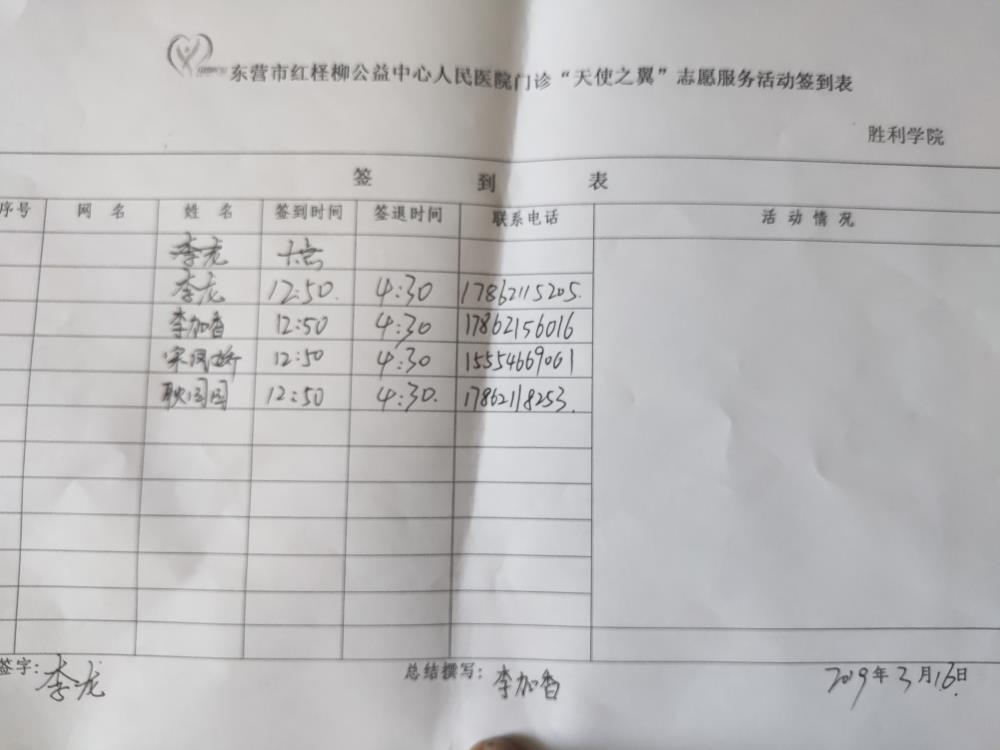 东营市红柽柳公益中心人民医院门诊“天使之翼”志愿服务活动签到表
胜利学院
签 到 表
序号 网 名 姓 名 签到时间 签退时间 联系电话 活 动 情 况
李龙
李龙 12:50. 4:30 17862115205.
李加香 12:50 4:30 17862156016
宋凤娇 12:50 4:30 15554669061
耿园园 12:50 4:30. 17862118253.
签字: 李龙 总结撰写: 李加香 2019年3月16日